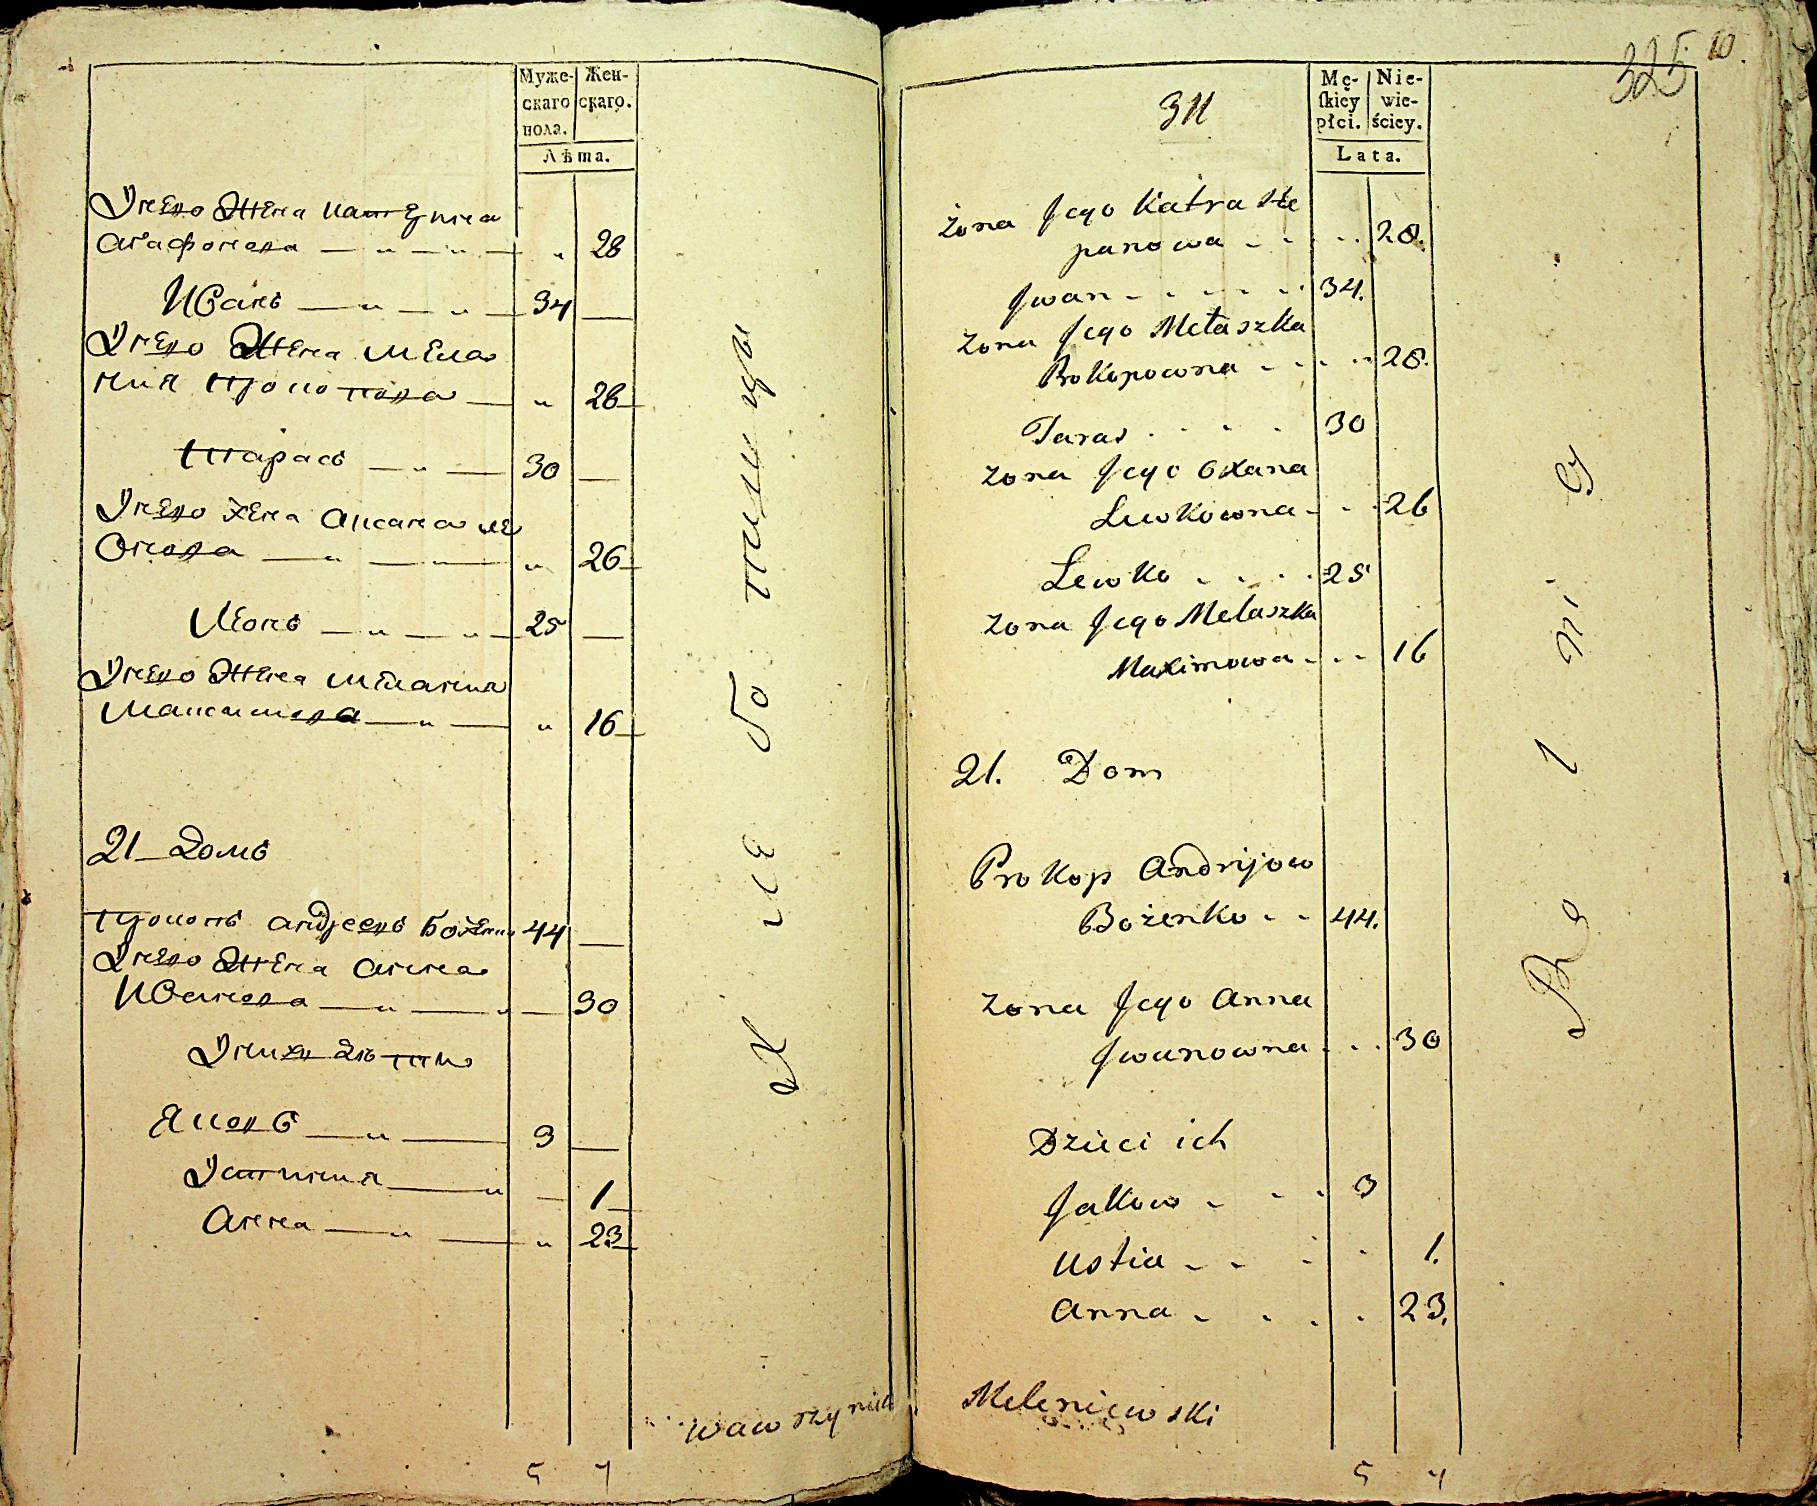 Муже-
скаго
пола.
Жен-
скаго.
Лѣта.
Иево Жена Катерина
Агафонова 28
Иванъ 34
Иево Жена Мела
ния Прокопова 28
Тарасъ 30
Иево Жена Аксана ле
Онова 26
Леонъ 25
Иево Жена Мелания
Максимова 16
21 Домъ
Прокопъ Андреевъ 44
Иево Жена Анна
Иванова 30
Ихъ дѣти
Яковъ 3
Устиния 1
Анна 23
Хлеботшцы
Wawrzyniec
5 7
325 10.
311
Mę-
ſkiey
płci.
Nie-
wie-
ściey.
Lata.
żona Jego Katra Ste
panowa 28.
Jwan 34.
żona Jego Melaszka
Prokopowna 28.
Taras 30
zona Jego Oxana
Lewkowna 26
Lewko 25
zona Jego Melaszka
Maximowa 16
21. Dom
Prokop Andrijow
Bożenko 44.
zona Jego Anna
Jwanowna 30
Dzieci ich
Jakow 3
Ustia 1.
Anna 23.
Rolnicy
Meleniewski
5 7